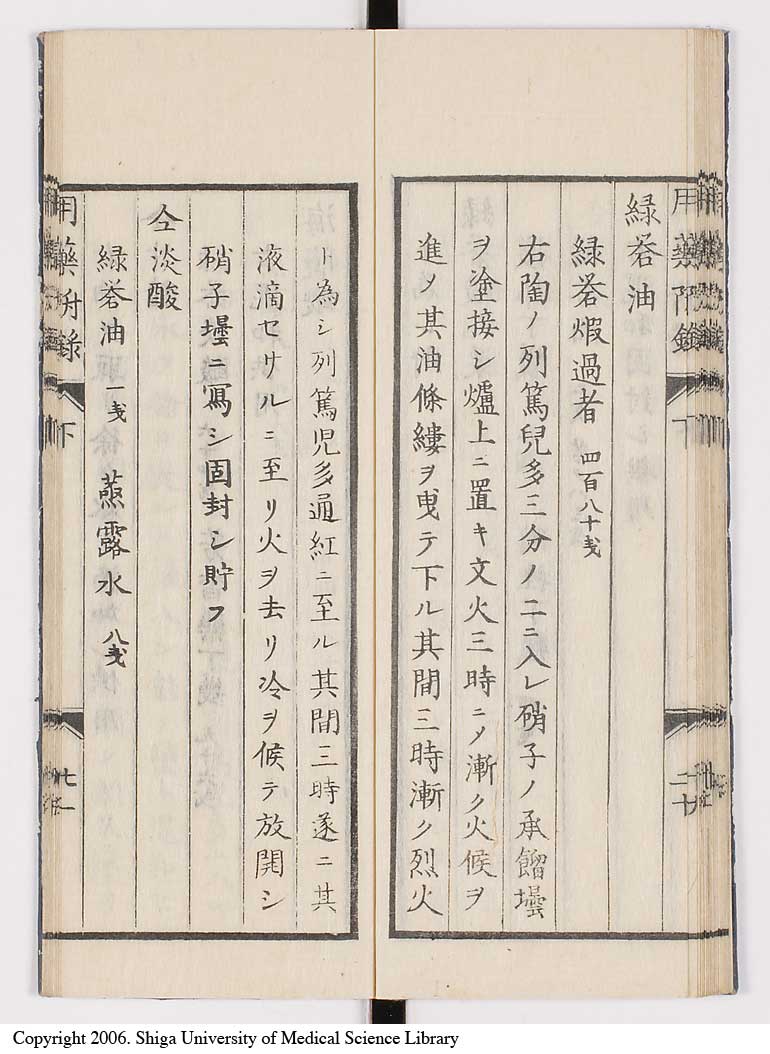 用藥附錄 下 二十
緑礬油
緑礬煆過者 四百八十戔
右陶ノ列篤兒多三分ノ二ニ入レ硝子ノ承餾壜
ヲ塗接シ爐上ニ置キ文火三時ニㄨ漸ク火候ヲ
進メ其油條縷ヲ曳テ下ル其間三時漸ク烈火
ト為シ列篤児多通紅ニ至ル其間三時遂ニ其
液滴セサルニ至リ火ヲ去リ冷ヲ候テ放開シ
硝子壜ニ寫シ固封シ貯フ
仝淡酸
緑礬油 一戔 蒸露水 八戔
用藥附錄 下
Copyright 2006. Shiga University of Medical Science Library